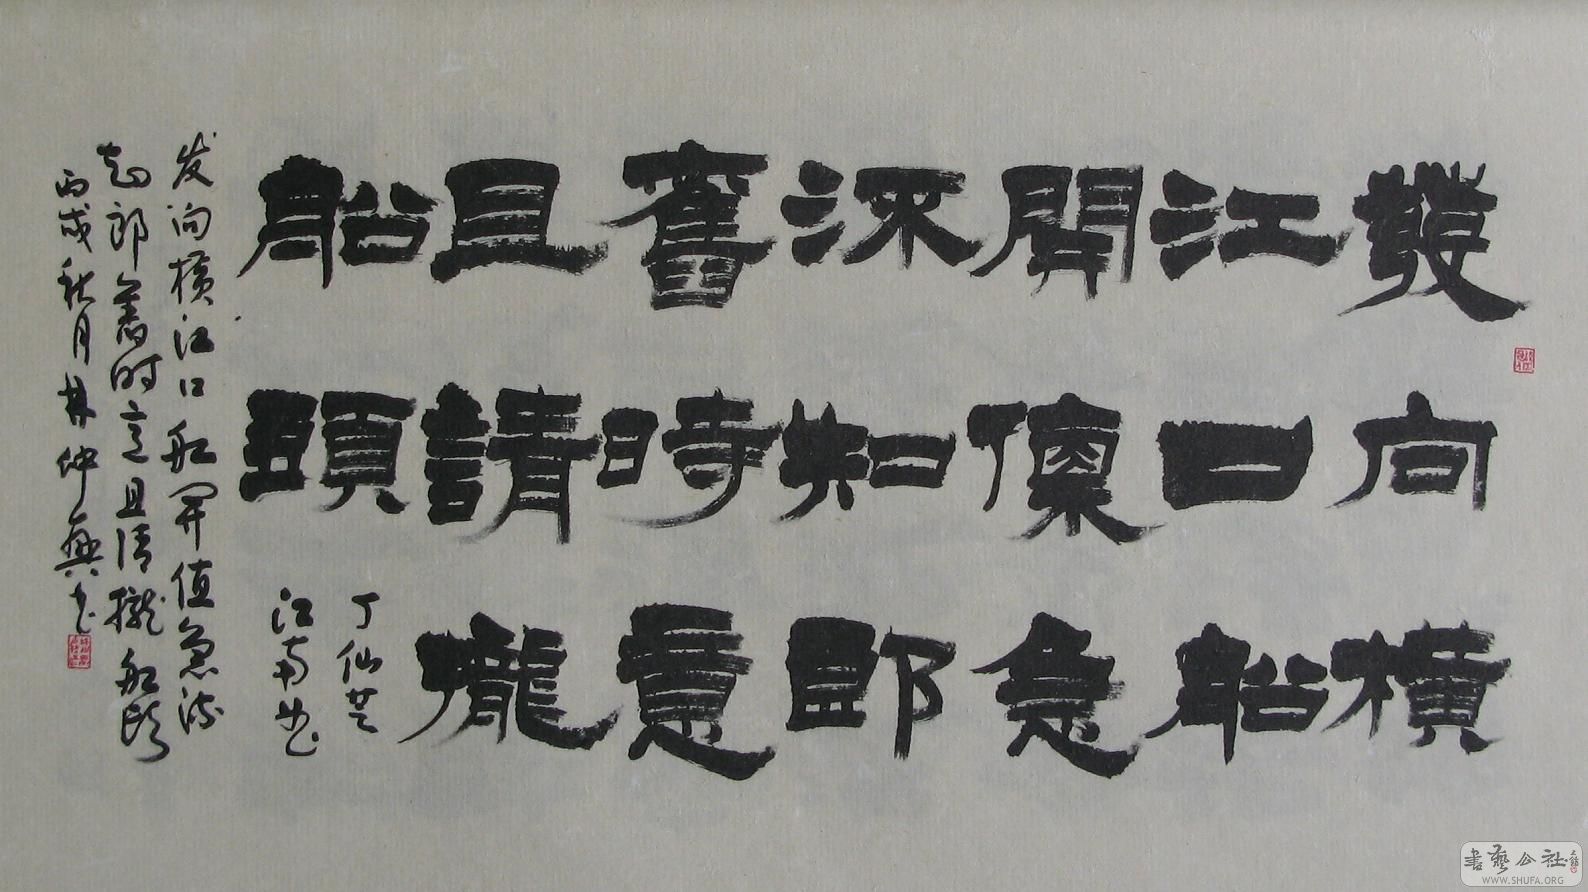 發向橫
江口船
開值急
流知郎
舊時意
且請攏
船頭
丁仙芝
江南曲
发向横江口船开值急流
知郎舊时意且请攏船头
丙戌秋月林仲興书
書藝公社
WWW.SHUFA.ORG